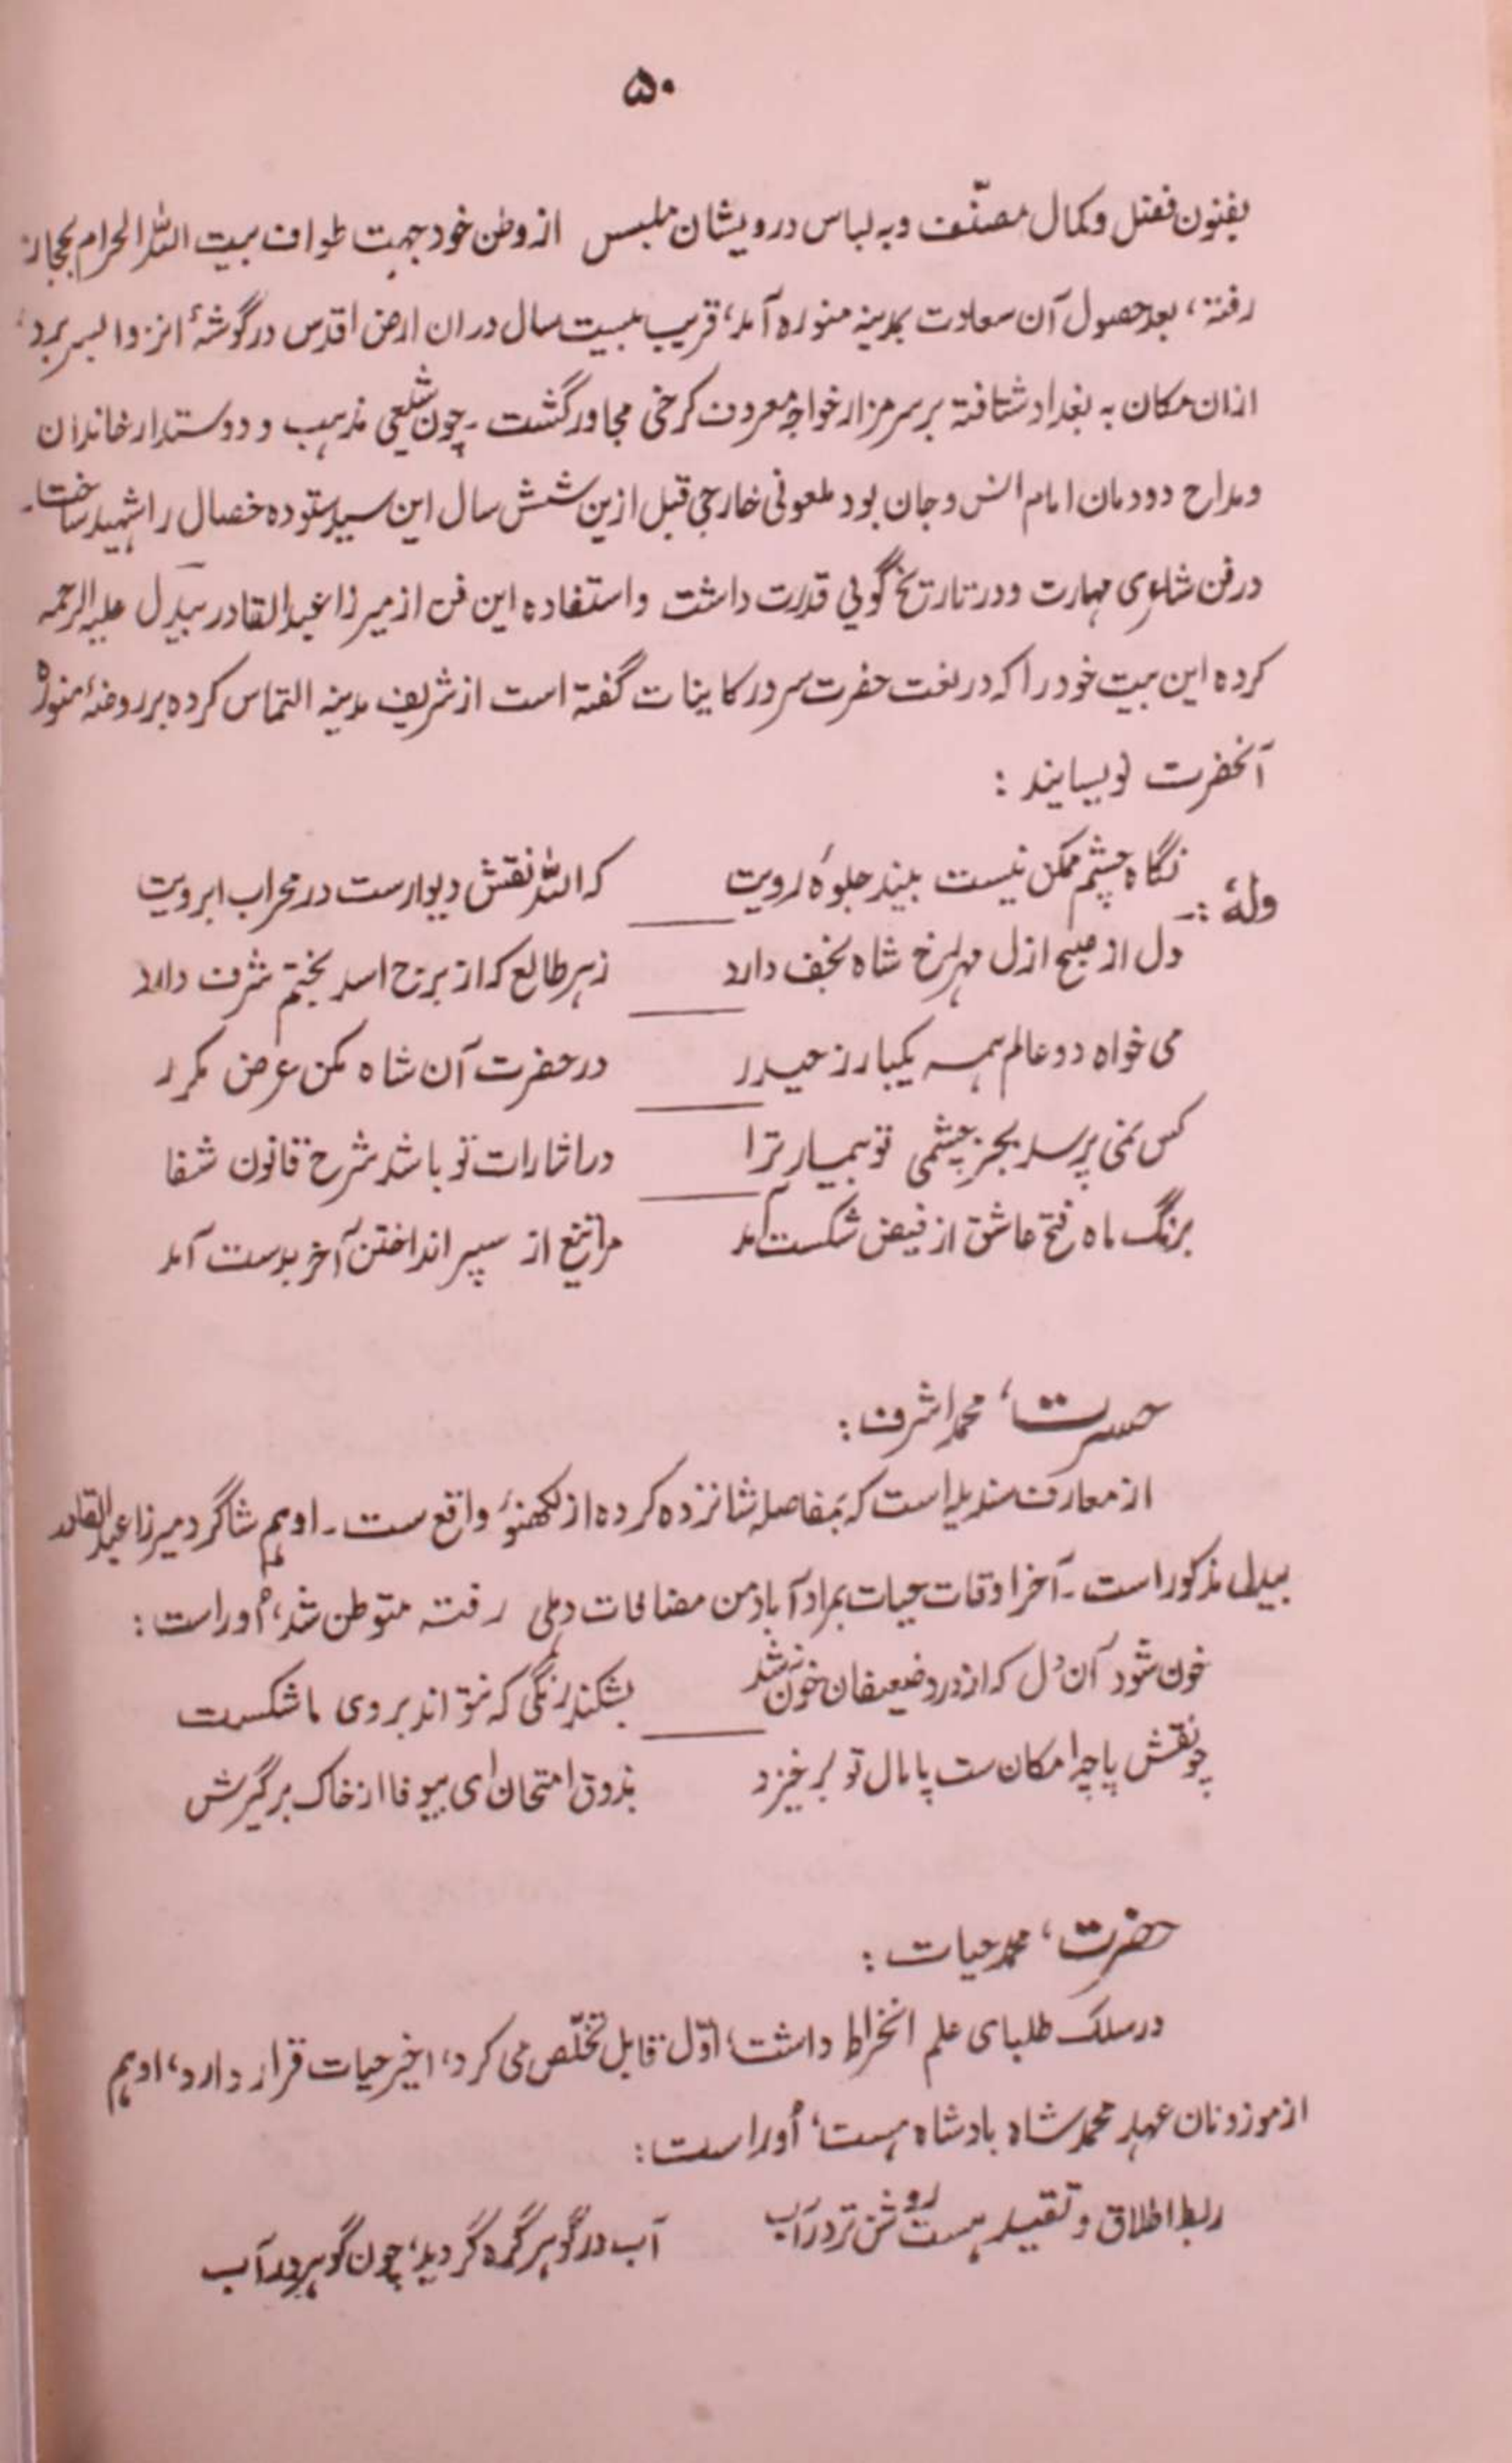 ۵۰
بفنون فضل و کمال مصنّف و به لباس درویشان ملبس از وطن خود جهت طواف بیت اللہ الحرام بحجاز
رفتہ، بعد حصول آن سعادت بمدینہ منورہ آمد، قریب بیست سال در ان ارض اقدس در گوشۂ انزوا بسر برد،
ازان مکان بہ بغداد شتافتہ بر سر مزار خواجہ معروف کرخی مجاور گشت ۔ چون شیعی مذہب و دوستدار خاندان
و مداح دودمان امام انس و جان بود ملعونی خارجی قبل ازین شش سال این سید ستودہ خصال را شہید ساخت۔
در فن شاعری مہارت و در تاریخ گوئی قدرت داشت و استفادہ این فن از میرزا عبدالقادر بیدل علیہ الرحمہ
کردہ این بیت خود را کہ در نعت حضرت سرور کاینات گفتہ است از شریف مدینہ التماس کردہ بر روضۂ منورہ
آنحضرت نویسایند :
نگاہ چشم ممکن نیست بیند جلوۂ رویت کہ اللہ نقش دیوارست در محراب ابرویت
ولہٗ :۔
دل از صبح ازل مہر رخ شاہ نجف دارد زہر طالع کہ از برج اسد بختم شرف دارد
می خواہ دو عالم ہمہ یکبار ز حیدر در حضرت آن شاہ مکن عرض مکرر
کس نمی پرسد بجز چشمی تو بیمار ترا در اشارات تو باشد شرح قانون شفا
برنگ ماہ فتح عاشق از فیض شکست آمد مرا تیغ از سپر انداختن آخر بدست آمد
حسرت، محمد اشرف :
از معارف سندیلہ است کہ بفاصلہ شانزدہ کردہ از لکھنؤ واقع ست ۔ او ہم شاگرد میرزا عبدالقادر
بیدل مذکور است ۔ آخر اوقات حیات بمراد آباد من مضافات دہلی رفتہ متوطن شد، اُوراست :
خون شود آن دل کہ از درد ضعیفان خون نشد بشکند رنگی کہ نتواند بروی ما شکست
چو نقش پا چہ امکان ست پامال تو برخیزد بذوق امتحان ای بیوفا از خاک برگیرش
حضرت، محمد حیات :
در سلک طلبای علم انخراط داشت، اوّل قابل تخلّص می کرد، اخیر حیات قرار دارد، او ہم
از موزونان عہد محمد شاہ بادشاہ ہست، اُوراست :
ربط اطلاق و تقیید ہست روشن تر در آب آب در گوہر گرہ گردید، چون گوہر در آب